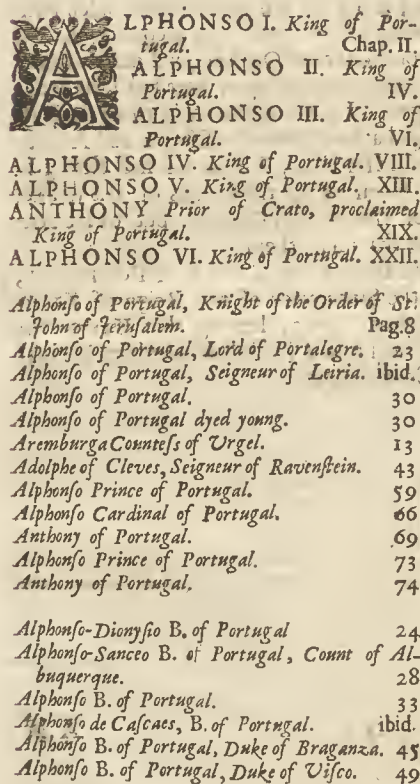 ALPHONSO I. King of Por-
tugal. Chap. II.
ALPHONSO II. King of
Portugal. IV.
ALPHONSO III. King of
Portugal. VI.
ALPHONSO IV. King of Portugal. VIII.
ALPHONSO V. King of Portugal. XIII.
ANTHONY Prior of Crato, proclaimed
King of Portugal. XIX.
ALPHONSO VI. King of Portugal. XXII.
Alphonſo of Portugal, Knight of the Order of St.
John of Jeruſalem. Pag. 8
Alphonſo of Portugal, Lord of Portalegre. 23
Alphonſo of Portugal, Seigneur of Leiria. ibid.
Alphonſo of Portugal. 30
Alphonſo of Portugal dyed young. 30
Aremburga Counteſs of Urgel. 13
Adolphe of Cleves, Seigneur of Ravenſtein. 43
Alphonſo Prince of Portugal. 59
Alphonſo Cardinal of Portugal. 66
Anthony of Portugal. 69
Alphonſo Prince of Portugal. 73
Anthony of Portugal. 74
Alphonſo-Dionyſio B. of Portugal 24
Alphonſo-Sanceo B. of Portugal, Count of Al-
buquerque. 28
Alphonſo B. of Portugal. 33
Alphonſo de Caſcaes, B. of Portugal. ibid.
Alphonſo B. of Portugal, Duke of Braganza. 45
Alphonſo B. of Portugal, Duke of Viſco. 46